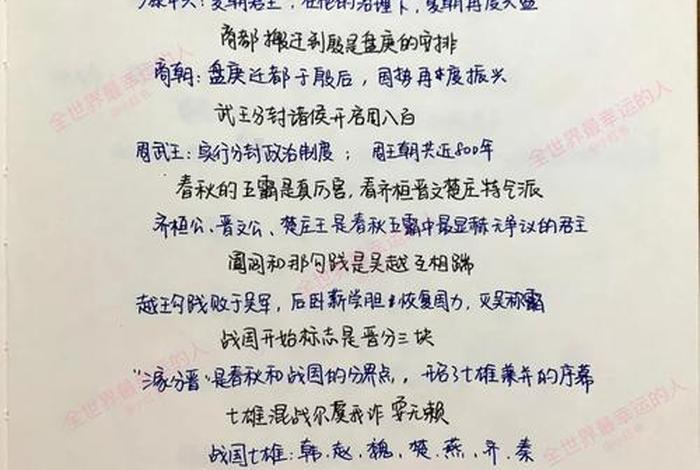 少康中兴：夏朝君王，在他的治理下，夏朝再度兴盛
商都搬迁到殷是盘庚的安排
商朝：盘庚迁都于殷后，国势再度振兴
武王分封诸侯开启周八百
周武王：实行分封政治制度；周王朝共近800年
春秋的五霸是真厉害，看齐桓晋文楚庄特气派
齐桓公、晋文公、楚庄王是春秋五霸中最显赫无争议的君主
阖闾和那句践是吴越互相踹
越王勾践败于吴军，后卧薪尝胆恢复国力，灭吴称霸
战国开始标志是晋分三块
"三家分晋"是春秋和战国的分界点，开启了七雄兼并的序幕
七雄混战尔虞我诈耍无赖
战国七雄：韩、赵、魏、楚、燕、齐、秦
全世界最幸运的人
全世界最幸运的人
全世界最幸运的人
全世界最幸运的人
全世界最幸运的人